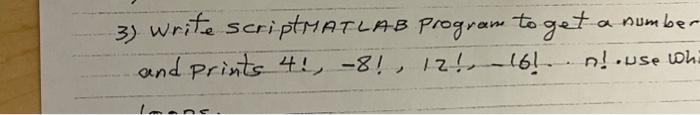 3) write scriptMATLAB Program to get a number
and prints 4!, -8!, 12!, -16! .. n! .use whi